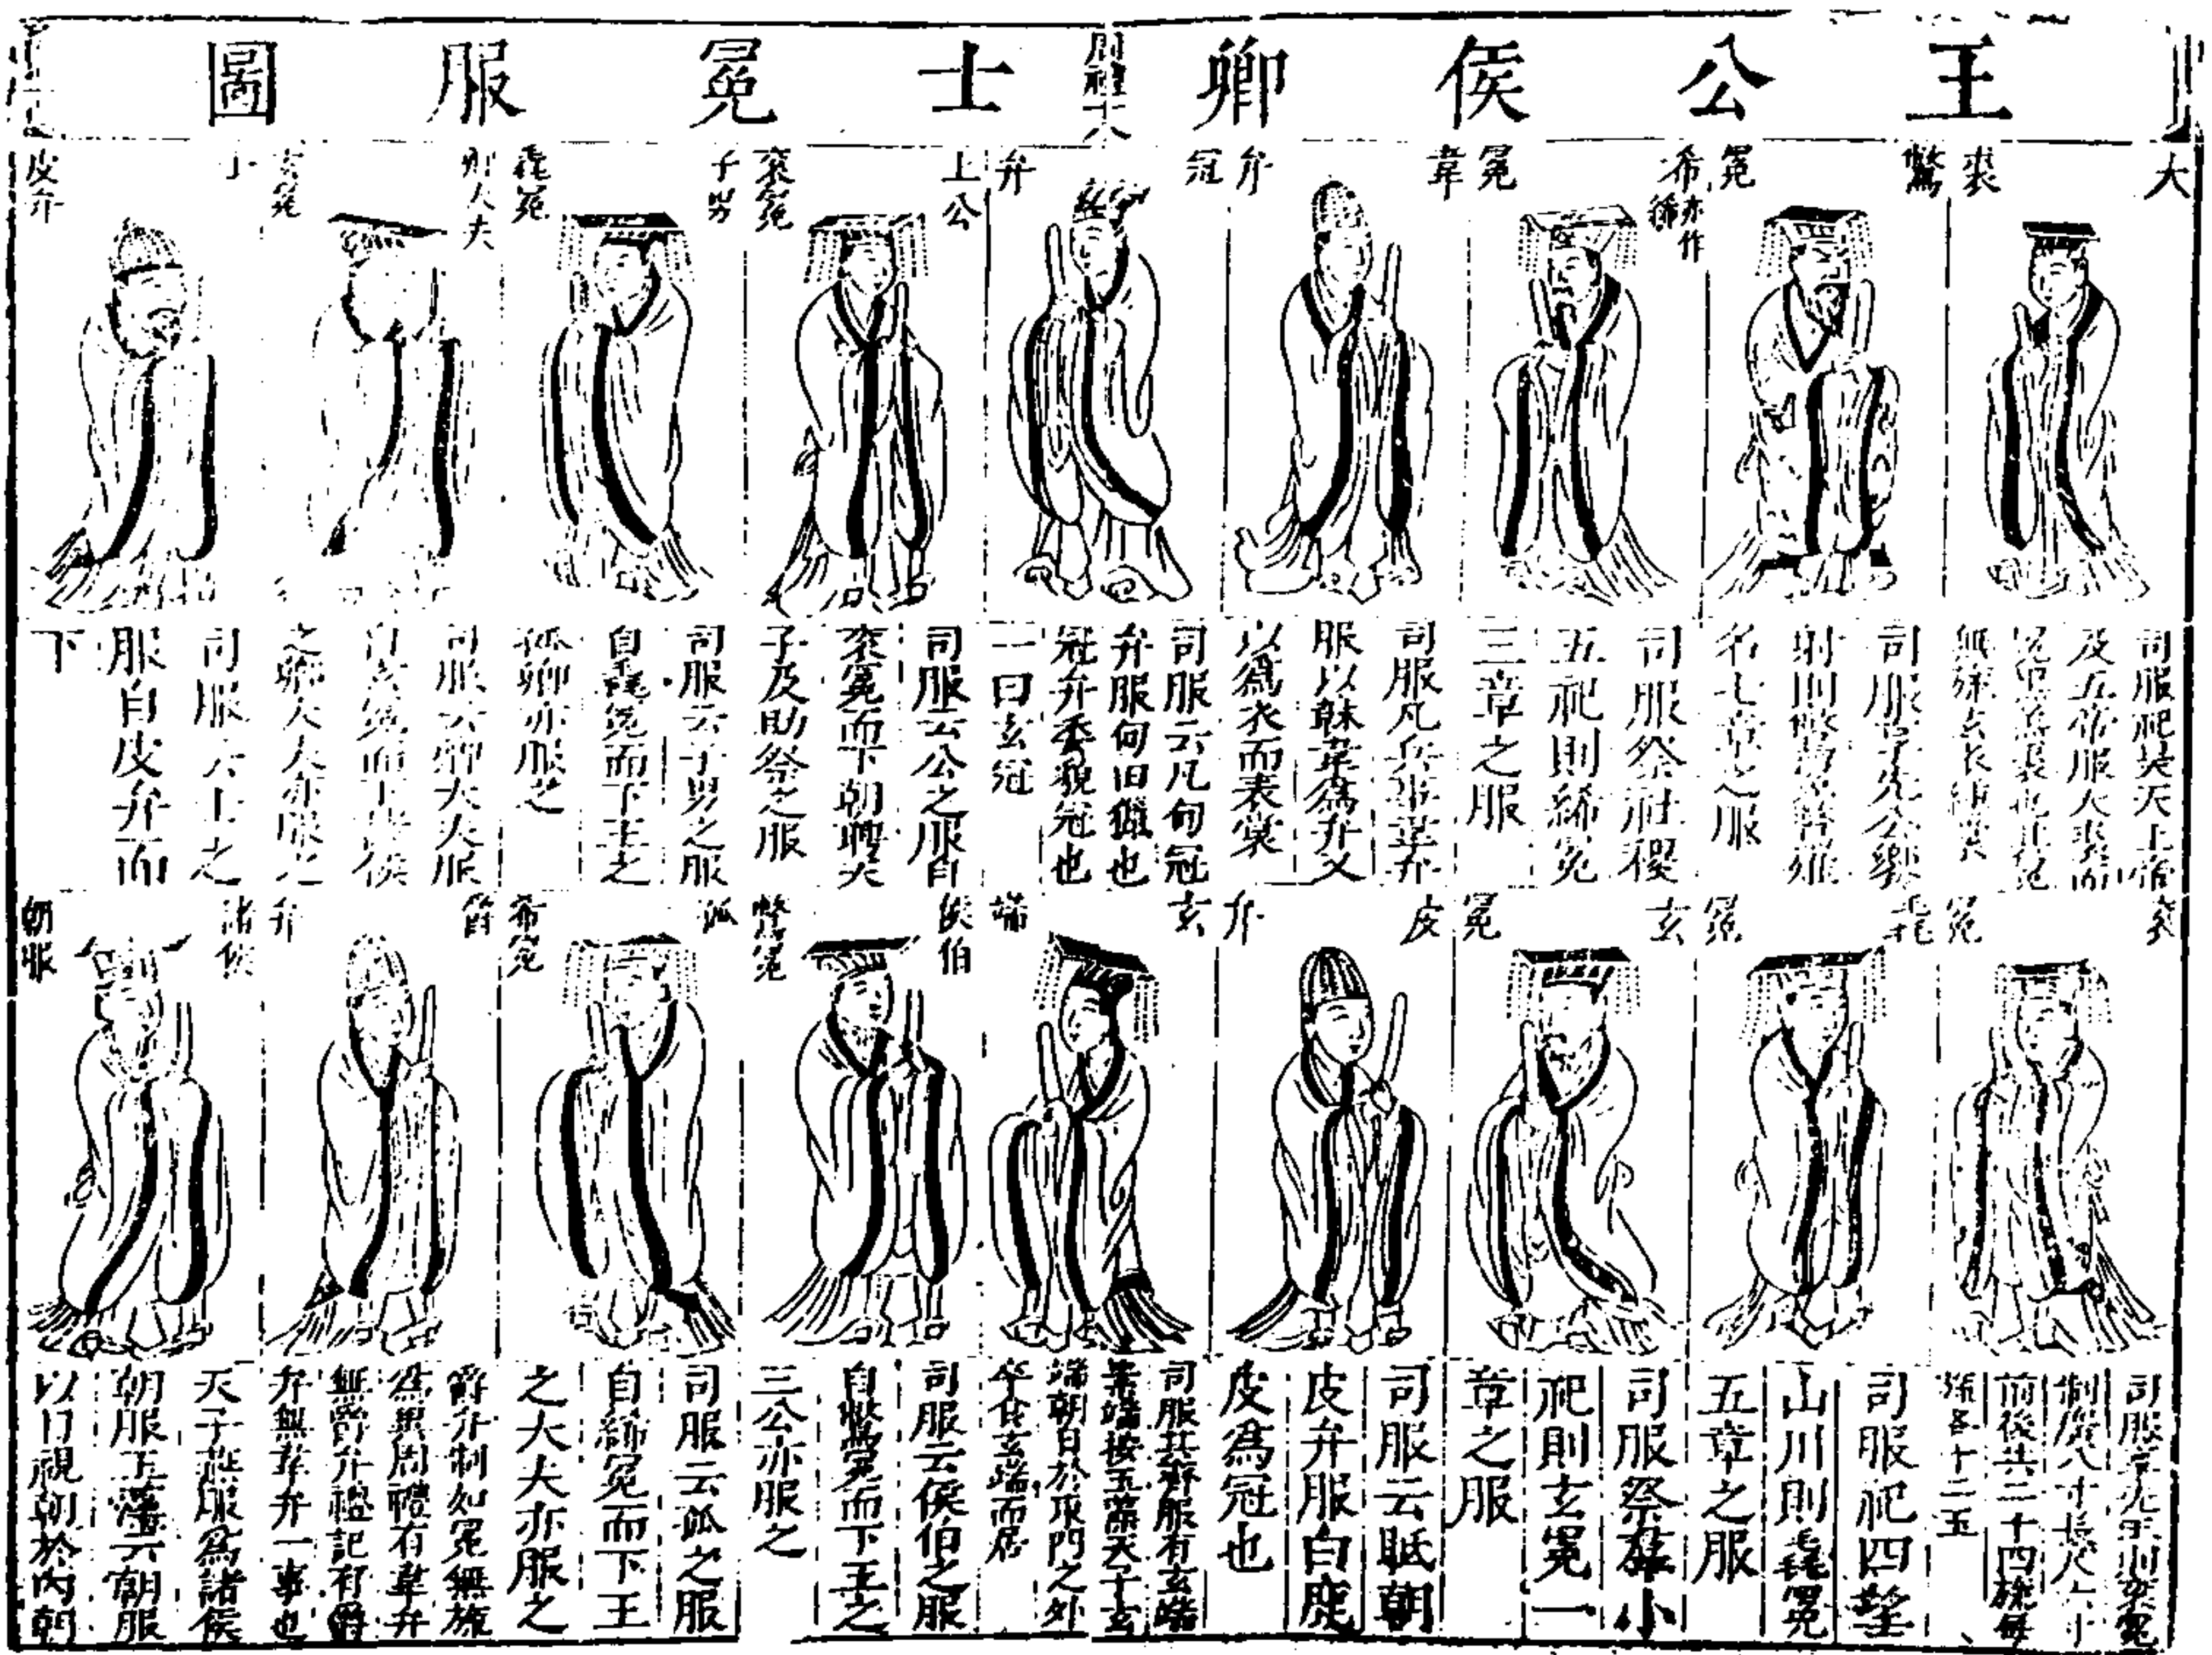 王公侯卿士冕服圖
周禮十八
大裘
司服祀昊天上帝
及五帝服大裘而
無旒玄衣纁裳
鷩冕
司服享先公饗
射則鷩冕
名七章之服
希冕
亦作絺
司服祭社稷
五祀則絺冕
三章之服
韋弁
司服凡兵事韋弁
服以韎韋為弁又
以為衣而表裳
冠弁
司服云凡甸冠
弁服甸田獵也
冠弁委貌冠也
一曰玄冠
上公袞冕
司服云公之服自
袞冕而下朝聘天
子及助祭之服
子男毳冕
司服云子男之服
自毳冕而下王之
孤卿亦服之
卿大夫玄冕
司服云卿大夫服
自玄冕而下諸侯
之卿大夫亦服之
士皮弁
司服云士之
服自皮弁而
下
袞冕
司服享先王則袞冕
制廣八寸長尺六寸
前後共二十四旒每
旒各十二玉
毳冕
司服祀四望
山川則毳冕
五章之服
玄冕
司服祭群小
祀則玄冕一
章之服
皮弁
司服云眡朝
皮弁服白鹿
皮為冠也
玄端
司服其齊服有玄端
素端按玉藻天子玄
端朝日於東門之外
卒食玄端而居
侯伯鷩冕
司服云侯伯之服
自鷩冕而下王之
三公亦服之
孤希冕
司服云孤之服
自絺冕而下王
之大夫亦服之
爵弁
爵弁制如冕無旒
為異周禮有韋弁
無爵弁禮記有爵
弁無韋弁一事也
諸侯朝服
天子燕服為諸侯
朝服玉藻云朝服
以日視朝於內朝